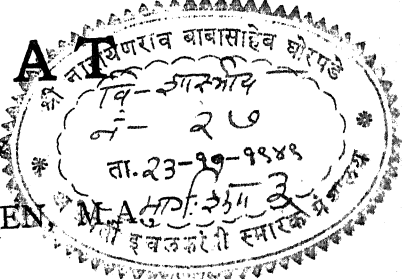 A T
श्री नारायणराव बाबासाहेब घोरपडे
वि-शास्त्रीय
नं- २७
ता. २३-११-१९४९
EN, M.A.
इचलकरंजी स्मारक ग्रंथालय